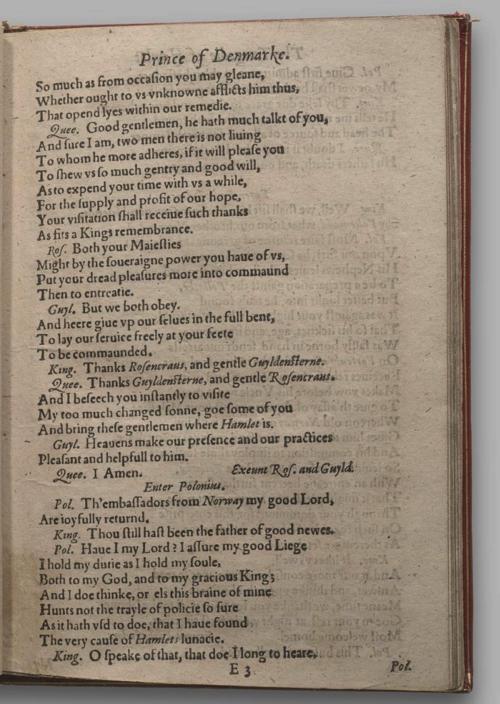 Prince of Denmarke.
So much as from occaſion you may gleane,
Whether ought to vs vnknowne afflicts him thus,
That opend lyes within our remedie.
Quee. Good gentlemen, he hath much talkt of you,
And ſure I am, two men there is not liuing
To whom he more adheres, if it will pleaſe you
To ſhew vs ſo much gentry and good will,
As to expend your time with vs a while,
For the ſupply and profit of our hope,
Your viſitation ſhall receiue ſuch thanks
As fits a Kings remembrance.
Roſ. Both your Maieſties
Might by the ſoueraigne power you haue of vs,
Put your dread pleaſures more into commaund
Then to entreatie.
Guyl. But we both obey.
And heere giue vp our ſelues in the full bent,
To lay our ſeruice freely at your feete
To be commaunded.
King. Thanks Roſencraus, and gentle Guyldenſterne.
Quee. Thanks Guyldenſterne, and gentle Roſencraus.
And I beſeech you inſtantly to viſite
My too much changed ſonne, goe ſome of you
And bring theſe gentlemen where Hamlet is.
Guyl. Heauens make our preſence and our practices
Pleaſant and helpfull to him.
Quee. I Amen. Exeunt Roſ. and Guyld.
Enter Polonius.
Pol. Th'embaſſadors from Norway my good Lord,
Are ioyfully returnd.
King. Thou ſtill haſt been the father of good newes.
Pol. Haue I my Lord? I aſſure my good Liege
I hold my dutie as I hold my ſoule,
Both to my God, and to my gracious King;
And I doe thinke, or els this braine of mine
Hunts not the trayle of policie ſo ſure
As it hath vſd to doe, that I haue found
The very cauſe of Hamlets lunacie.
King. O ſpeake of that, that doe I long to heare.
E 3 Pol.